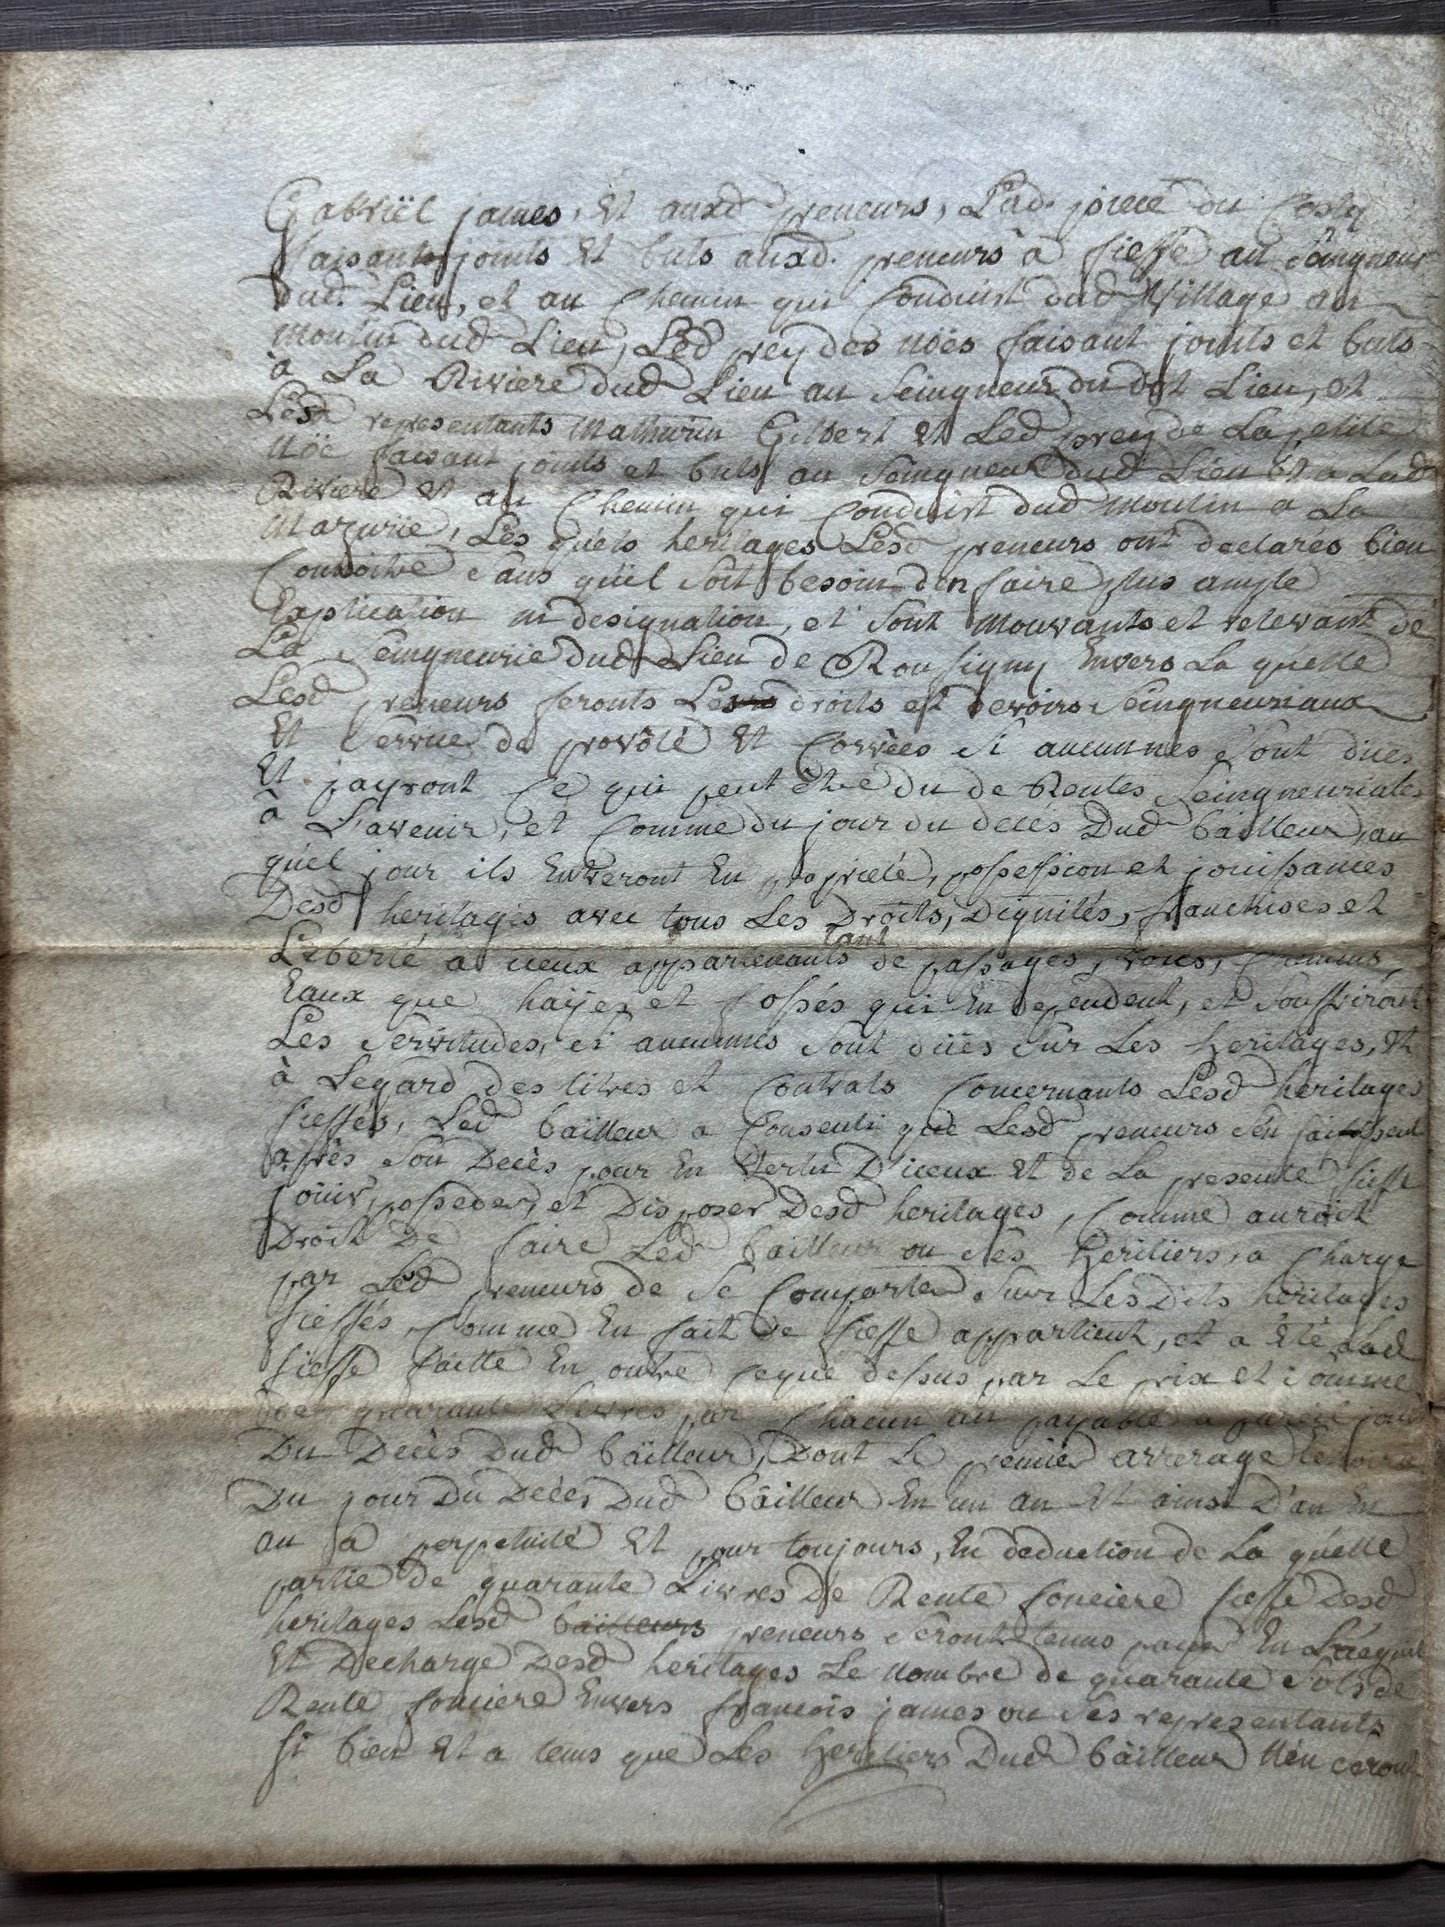 Gabriël james, Et auxd. preneurs, Lad. piece du Costy
faisante joints Et buts auxd. preneurs à fieffe au Seingneur
dud. Lieu, et au Chemin qui Conduist dud Village au
Moulin dud Lieu, Led prey des nöes faisant joints et buts
à La Riviere dud Lieu au Seingneur du dit Lieu, et
Lesd representants Mathurin Gilbert Et Led prey de La petite
Nöe faisant joints et buts au Seingneur dud Lieu Et a Lad
Riviere Et au Chemin qui Conduist dud moulin a La
Mazurie, Les quels heritages Lesd preneurs ont declarés bien
Connoitre Sans quïl Soit besoin den faire plus ample
Explication ni designation, et Sont Mouvants et relevant de
La Seingneurie dud Lieu de Rousigny Envers La quelle
Lesd preneurs feronts Les droits et devoirs Seingneuriaux
Et Service de provôté Et Corvées Si aucunnes Sont dües
Et payront Ce qui peut être du de Rentes Seingneuriales
a L'avenir, et Comme du jour du decés Dud bâilleur, au
quel jour ils Entreront En proprieté, possession et jouissances
Desd heritages avec tous Les Droits, Dignités, franchises et
Liberté a iceux appartenants tant de passages, voies, Chemins,
Eaux que hayes et fossés qui En dependent, et Souffriront
Les Servitudes, si aucunnes Sont düës Sur Les heritages, Et
à Legard des titres et Contrats Concernants Lesd heritages
fieffés, Led bailleur a Consenti que Lesd preneurs S'en saisissent
après Son Decès pour En Vertu D'iceux Et de La presente fieffe
joüir, posseder, et Disposer Desd heritages, Comme auroit
Droit De faire Led bailleur ou Ses Heritiers, a Charge
par Led preneurs de Se Comporter Sur Les Dits heritages
fieffés, Comme En fait de fieffe appartient, et a Eté Lad
fieffe faitte En outre Ceque dessus par Le prix et Somme
de quarante Livres par Chacun an payable a pareil jour
Du Decès Dud bailleur, Dont Le premier arrerage
Du jour Du Decés Dud bâilleur En un an Et ainsi D'an En
an a perpetuité Et pour toujours, En deduction de La quelle
partie de quarante Livres De Rente fonciere fieffe Desd
heritages Lesd bailleurs preneurs Seront tenus payer En L'acquit
Et Decharge Desd heritages Le Nombre de quarante Sols de
Rente fonciere Envers francois james ou Ses representants
Si bien Et a tems que Les Heritiers Dud bâilleur N'en Ceront